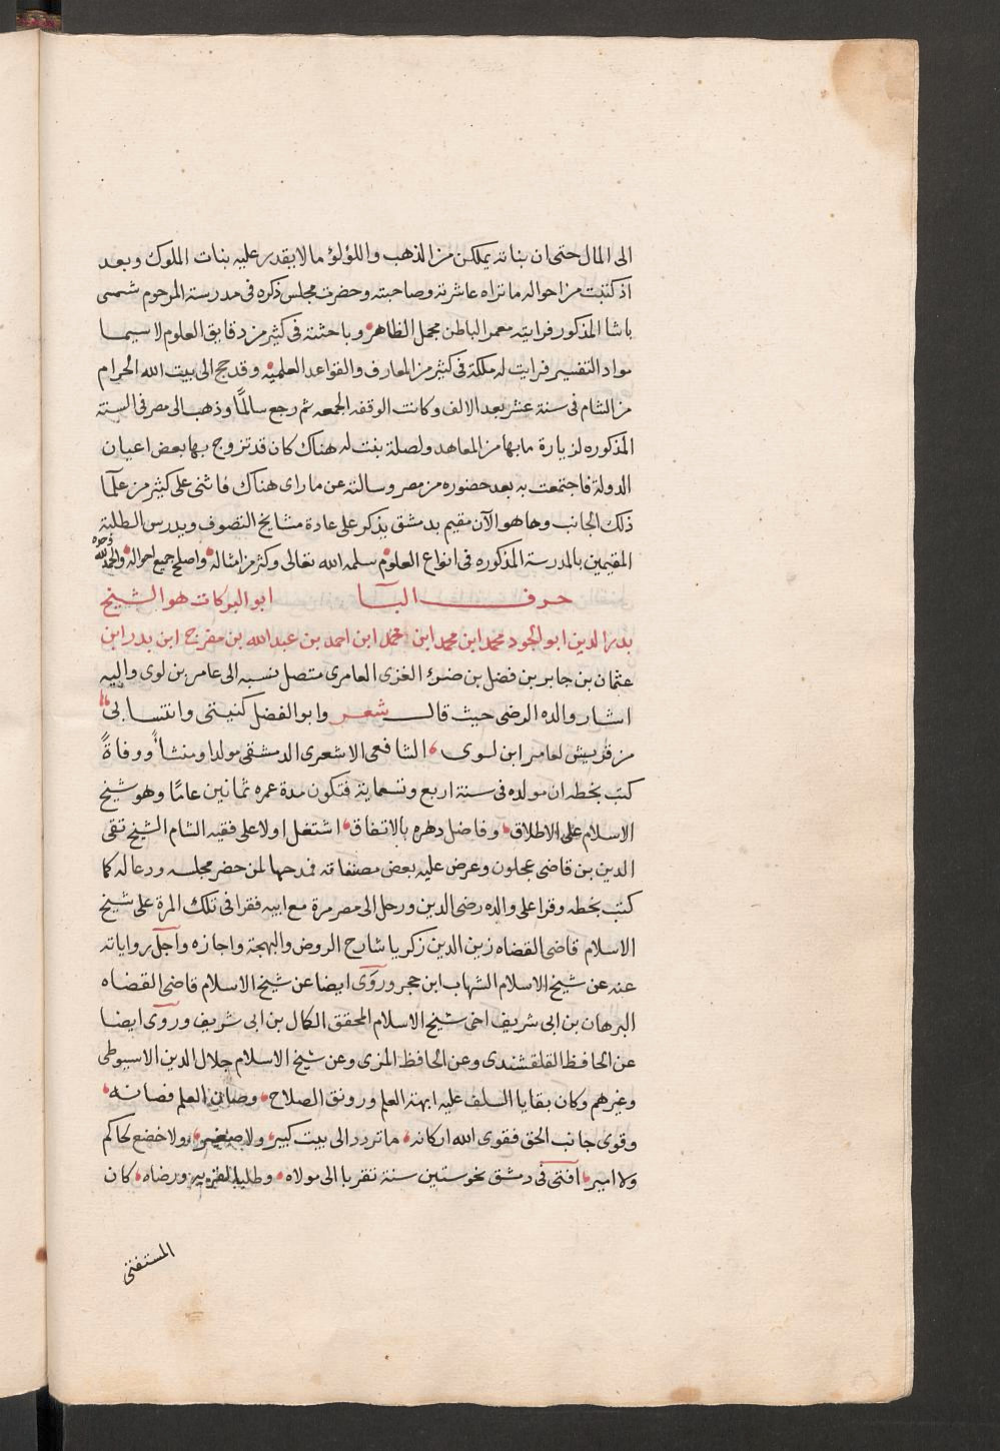 الى المال حتى ان بناته يملكن من الذهب واللؤلؤ ما لا يقدر عليه بنات الملوك وبعد
اذ كتبت من احواله ما تراه عاشرته وصاحبته وحضرت مجلس ذكره فى مدرسة المرحوم شمسى
باشا المذكور فرايته معمر الباطن مجمل الظاهر وباحثته فى كثير من دقايق العلوم لا سيما
مواد التفسير فرايت له ملكة فى كثير من المعارف والقواعد العلميه وقد حج الى بيت الله الحرام
من الشام فى سنة عشر بعد الالف وكانت الوقفه الجمعه ثم رجع سالمًا وذهب الى مصر فى السنة
المذكوره لزيارة ما بها من المعاهد ولصلة بنت له هناك كان قد تزوج بها بعض اعيان
الدولة فاجتمعت به بعد حضوره من مصر وسالته عن ما راى هناك فاثنى على كثير من علمآ
ذلك الجانب وها هو الآن مقيم بدمشق يذكر على عادة مشايخ التصوف ويدرس الطلبة
المقيمين بالمدرسة المذكوره فى انواع العلوم سلمه الله تعالى وكثر من امثاله واصلح جميع احواله والحمد لله وحده
حرف البآ ابو البركات هو الشيخ
بدر الدين ابو الجود محمد ابن محمد ابن محمد ابن احمد بن عبد الله بن مفرج ابن بدر ابن
عثمان بن جابر بن فضل بن ضوء الغزى العامرى متصل نسبه الى عامر بن لوى واليه
اشار والده الرضى حيث قال شعر وابو الفضل كنيتى وانتسابى
من قريش لعامر ابن لوى الشافعى الاشعرى الدمشقى مولدا ومنشأ ووفاةً
كتب بخطه ان مولده فى سنة اربع وتسعماية فتكون مدة عمره ثمانين عامًا وهو شيخ
الاسلام على الاطلاق وفاضل دهره بالاتفاق اشتغل اولا على فقيه الشام الشيخ تقى
الدين بن قاضى عجلون وعرض عليه بعض مصنفاته فمدحها لمن حضر مجلسه ودعا له كما
كتب بخطه وقرا على والده رضى الدين ورحل الى مصر مرة مع ابيه فقرا فى تلك المرة على شيخ
الاسلام قاضى القضاه زين الدين زكريا شارح الروض والبهجة واجازه واجل رواياته
عنه عن شيخ الاسلام الشهاب ابن حجر وروى ايضا عن شيخ الاسلام قاضى القضاه
البرهان بن ابى شريف اخى شيخ الاسلام المحقق الكمال بن ابى شريف وروى ايضا
عن الحافظ القلقشندى وعن الحافظ المزى وعن شيخ الاسلام جلال الدين الاسيوطى
وغيرهم وكان بقايا السلف عليه ابهة العلم ورونق الصلاح وصان العلم فصانه
وقوى جانب الحق فقوى الله اركانه ما تردد الى بيت كبير ولا صغير ولا خضع لحاكم
ولا امير افتى فى دمشق نحو ستين سنة تقربا الى مولاه وطلبا لقربه ورضاه كان
المستفتى